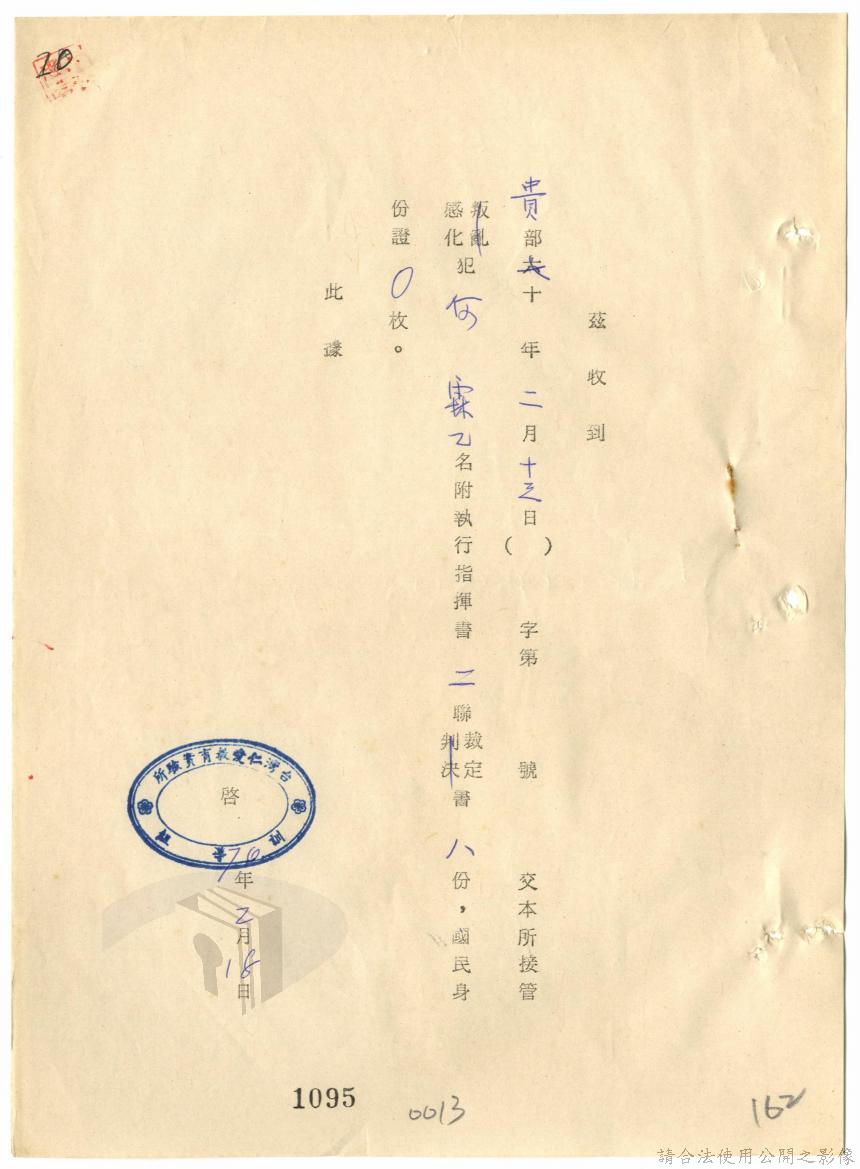 20
茲收到
貴部七十年二月十三日( )字第 號 交本所接管
叛亂
感化
犯何霖乙名附執行指揮書二聯
裁定
判決
書八份，國民身
份證0枚。
此據
台灣仁愛教育實驗所
啓
70年2月18日
1095
0013
162
請合法使用公開之影像